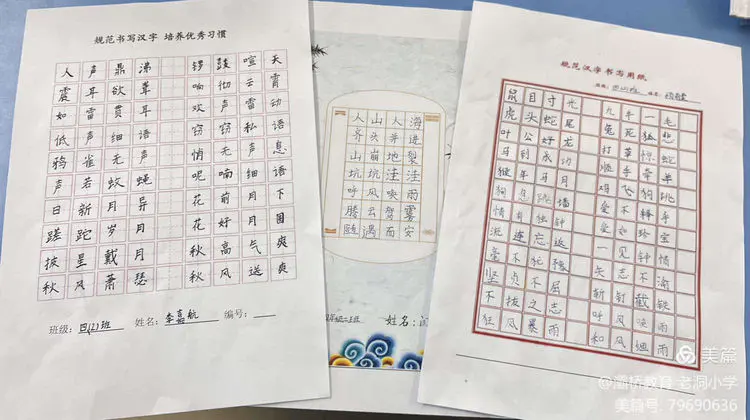 规范书写汉字 培养优秀习惯
人声鼎沸 锣鼓喧天
震耳欲聋 响彻云霄
如雷贯耳 欢声雷动
低声细语 窃窃私语
鸦雀无声 悄无声息
声若蚊蝇 呢喃细语
日新月异 花前月下
蹉跎岁月 花好月圆
披星戴月 秋高气爽
秋风萧瑟 秋风送爽
班级: 四(2)班 姓名: 李嘉航 编号:
人山人海
齐头并进
山崩地裂
坑坑洼洼
呼风唤雨
腾云驾雾
随遇而安
姓名:
规范汉字书写用纸
班级: 姓名:
鼠目寸光 九牛一毛
虎头蛇尾 兔死狐悲
叶公好龙 打草惊蛇
马到成功 顺手牵羊
猴年马月 鸡飞狗跳
狗急跳墙 爱不释手
情有独钟 爱如珍宝
流连忘返 一见钟情
毫不犹豫 矢志不渝
坚贞不屈 斩钉截铁
不拔之志 呼风唤雨
狂风暴雨 和风细雨
美篇
@灞桥教育 老洞小学
美篇号: 79690636